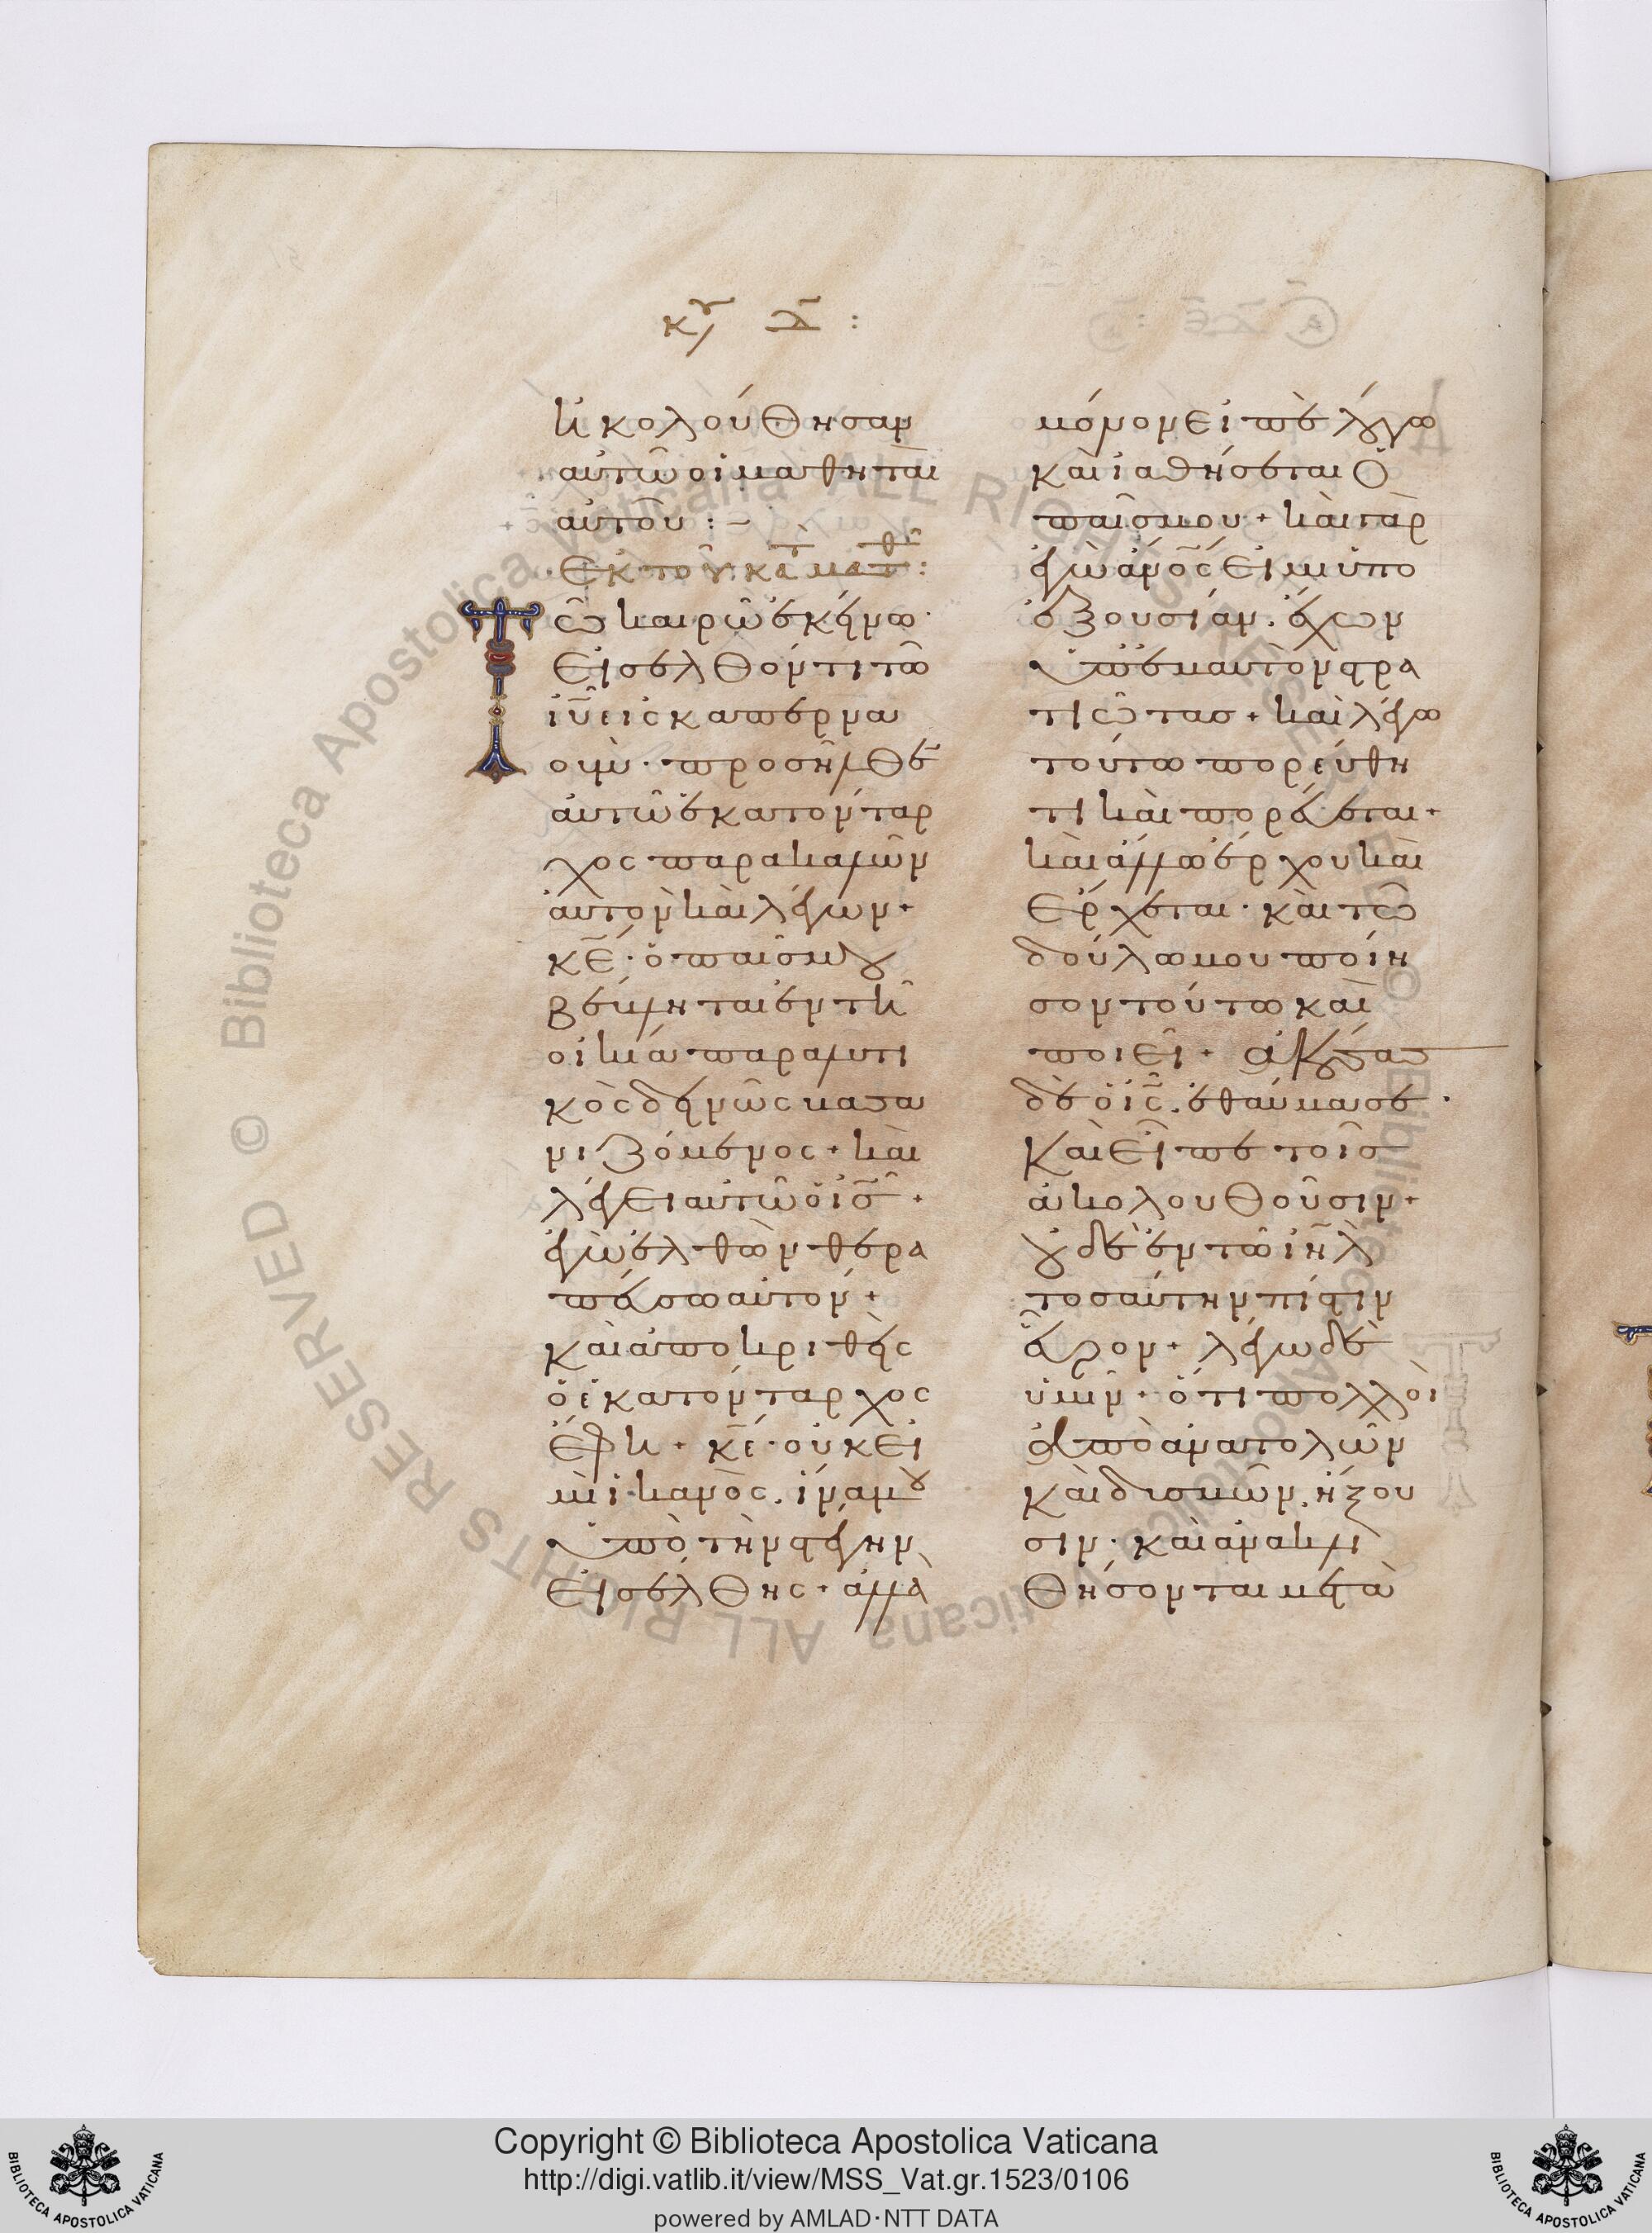 κυ δ :
ἠκολούθησαν
αὐτῶ οἱ μαθηταὶ
αὐτοῦ : –
Ἐκ τοῦ κατὰ ματθ :
Τῶ καιρῶ ἐκείνω ·
εἰσελθόντι τῶ
ιυ εἰς καπερνα
ουμ · προσῆλθεν
αὐτῶ ἑκατόνταρ
χος παρακαλῶν
αὐτὸν καὶ λέγων +
κε · ὁ παῖς μου
βέβληται ἐν τῆ
οἰκία παραλυτι
κὸς δεινῶς βασα
νιζόμενος + καὶ
λέγει αὐτῶ ὁ ις +
ἐγὼ ἐλθὼν θερα
πεύσω αὐτόν +
καὶ ἀποκριθεὶς
ὁ ἑκατόνταρχος
ἔφη + κε · οὐκ εἰ
μὶ ἱκανὸς . ἵνα μου
ὑπὸ τὴν στέγην
εἰσέλθης + ἀλλὰ
μόνον εἰπὲ λόγω
καὶ ἰαθήσεται ὁ
παῖς μου + καὶ γὰρ
ἐγὼ ἄνος εἰμι ὑπὸ
ἐξουσίαν . ἔχων
ὑπ' ἐμαυτὸν στρα
τιώτας + καὶ λέγω
τούτω πορεύθη
τι καὶ πορεύεται +
καὶ ἄλλω ἔρχου καὶ
ἔρχεται · καὶ τῶ
δούλω μου ποίη
σον τοῦτο καὶ
ποιεῖ + ἀκούσας
δὲ ὁ ις . ἐθαύμασε .
καὶ εἶπε τοῖς
ἀκολουθοῦσιν +
οὐδὲ ἐν τῶ ιηλ
τοσαύτην πίστιν
εὗρον + λέγω δὲ
ὑμῖν + ὅτι πολλοὶ
ἀπὸ ἀνατολῶν
καὶ δυσμῶν ἥξου
σιν · καὶ ἀνακλι
θήσονται μετὰ
Biblioteca Apostolica Vaticana ALL RIGHTS RESERVED ©
Copyright © Biblioteca Apostolica Vaticana
http://digi.vatlib.it/view/MSS_Vat.gr.1523/0106
powered by AMLAD·NTT DATA
BIBLIOTECA APOSTOLICA VATICANA
BIBLIOTECA APOSTOLICA VATICANA